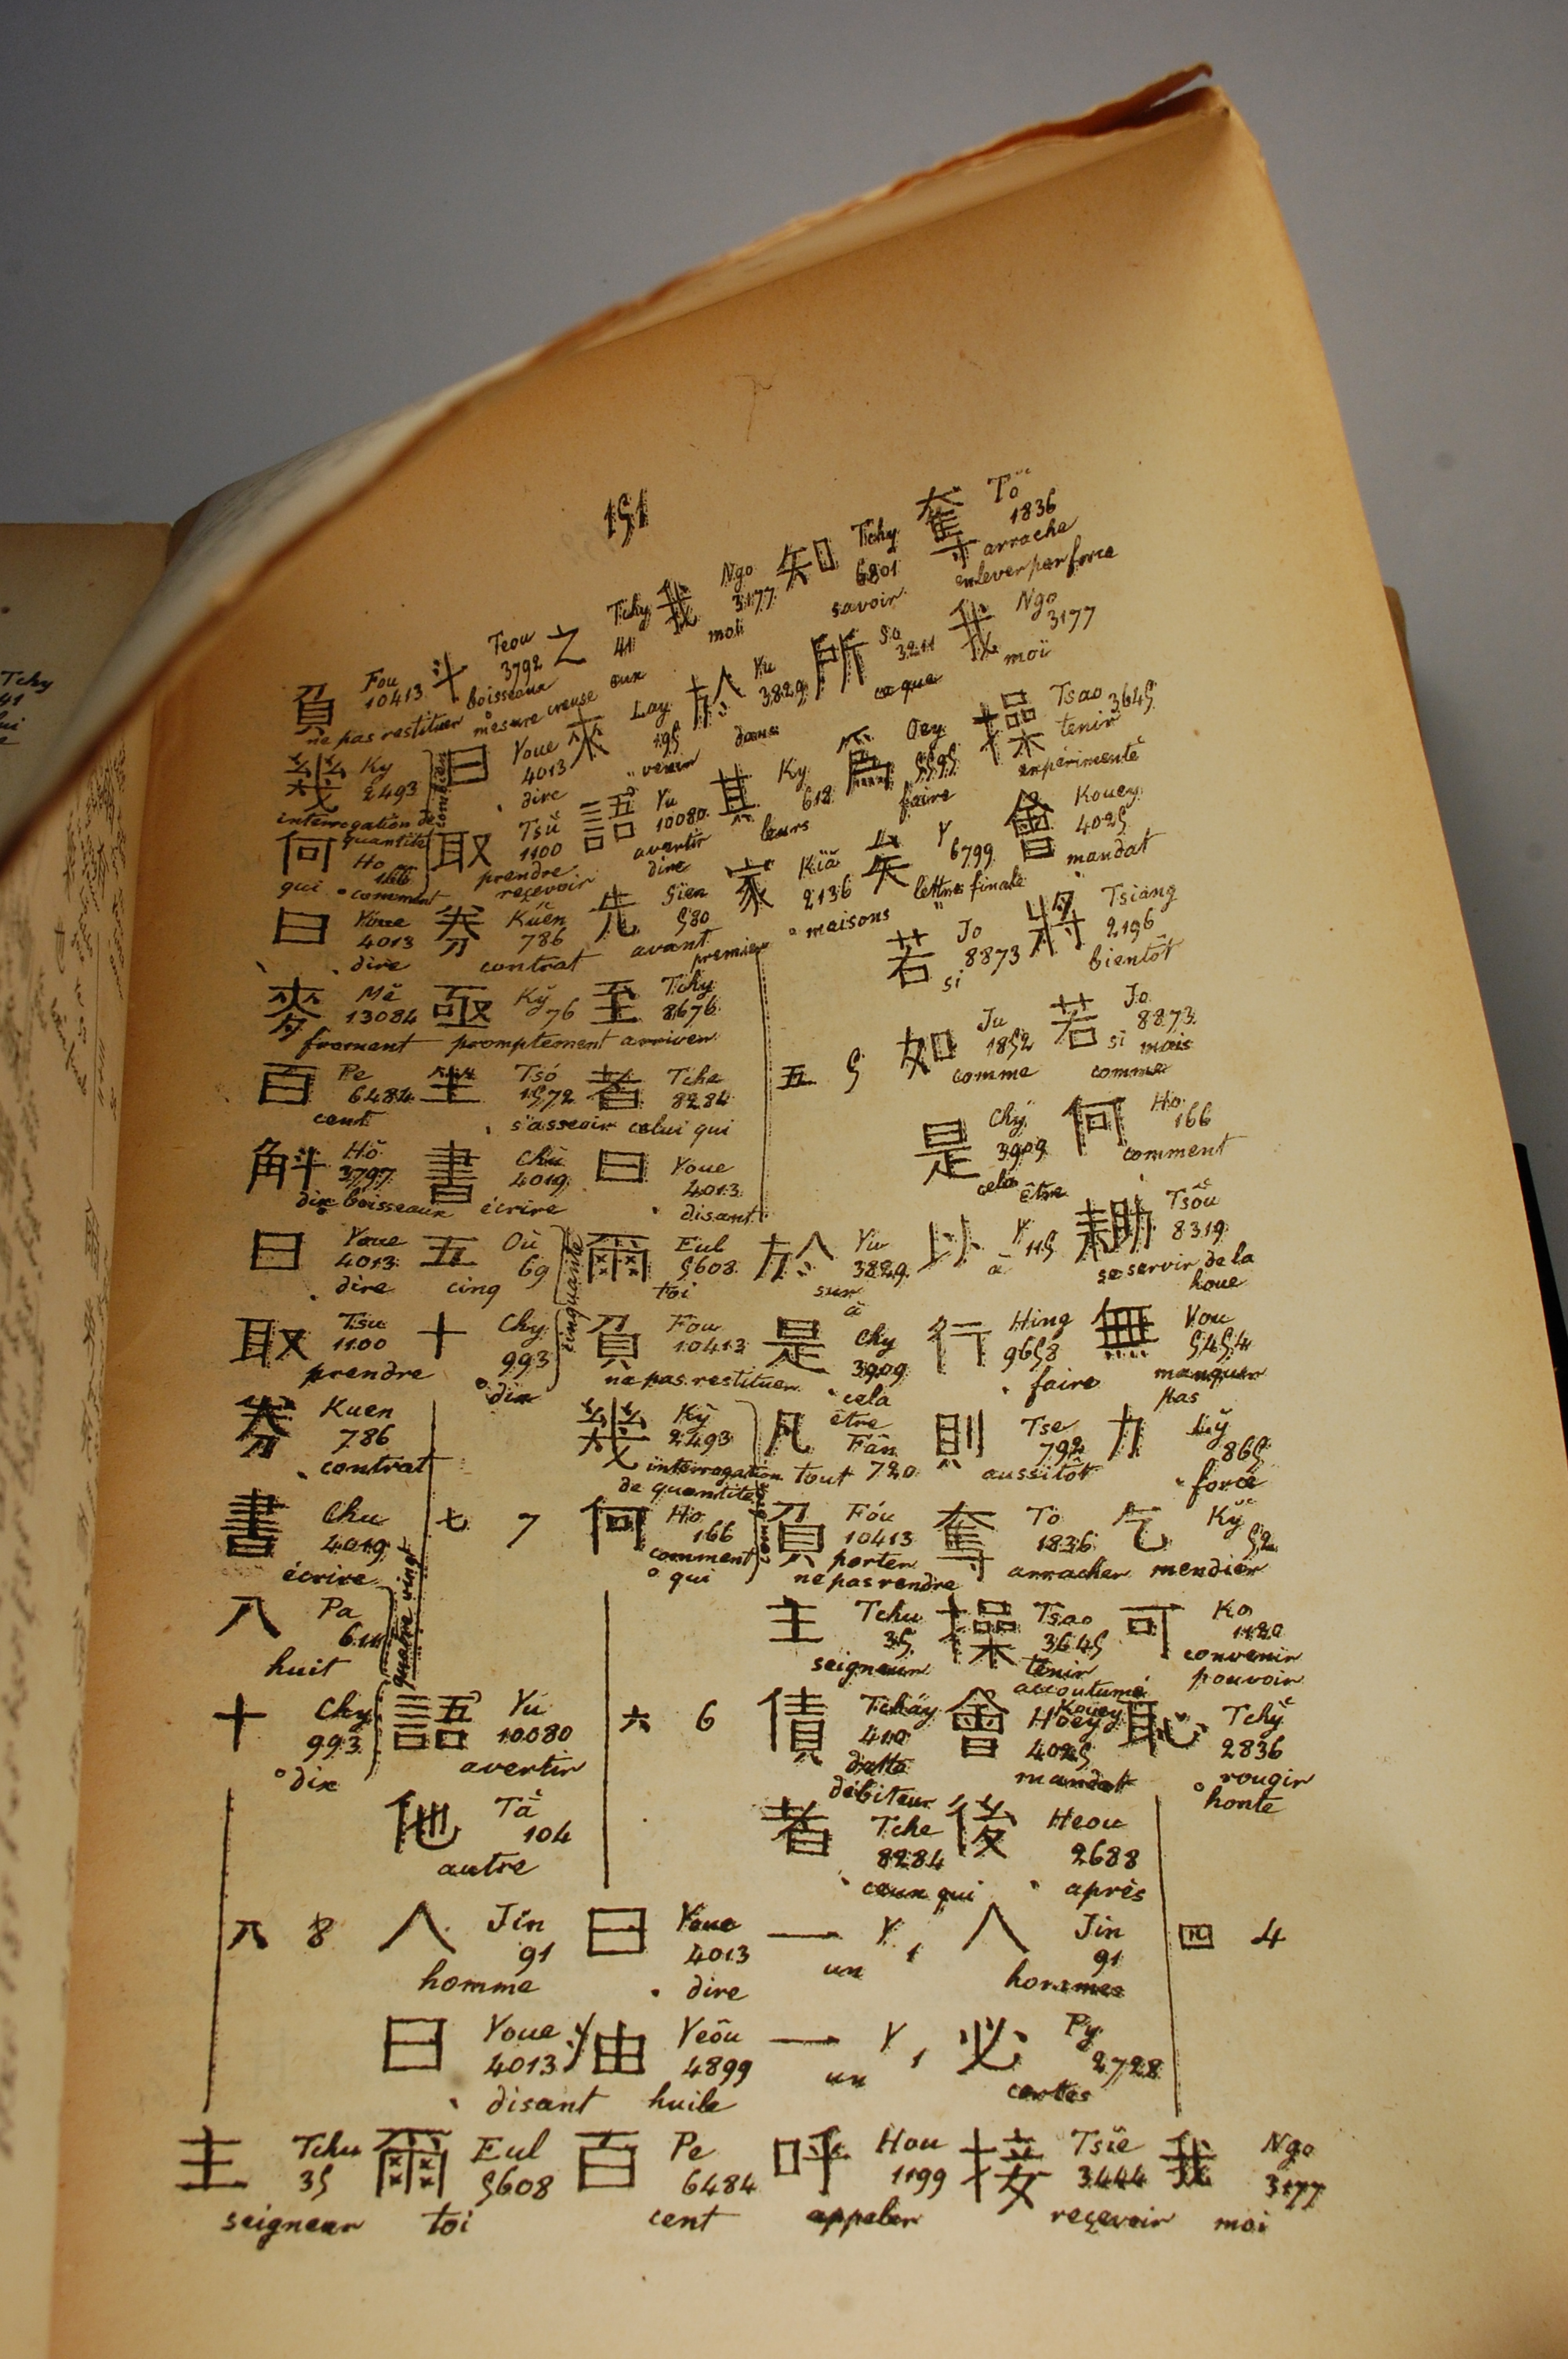 151
奪 Tŏ 1836 arracha enlever par force
我 Ngo 3177 moi
操 Tsao 3645 tenir expérimenté
會 Kouey 4025 mandat
將 Tsiang 2196 bientôt
若 Jo 8873 si mais comme
何 Ho 166 comment
耡 Tsôu 8319 se servir de la houe
無 Vou 5454 manquer pas
力 Lỹ 865 force
乞 Kỹ 52 mendier
可 Ko 1120 convenir pouvoir
恥 Tchỹ 2836 rougir honte
四 4
我 Ngo 3177 moi
知 Tchy 6801 savoir
所 So 3211 ce que
為 Oey 5595 faire
矣 Y 6799 lettre finale
若 Jo 8873 si
如 Ju 1852 comme
是 Chỹ 3909 cela être
以 Y 115 à
行 Hing 9658 faire
則 Tse 792 aussitôt
奪 To 1836 arracher
操 Tsao 3645 tenir accoutumé
會 Kouey Hoey 4025 mandat
後 Heou 2688 après
人 Jin 91 hommes
必 Py 2728 certes
接 Tsie 3444 recevoir
我 Ngo 3177 moi
於 Yu 3829 dans
其 Ky 618 leurs
家 Kiä 2136 maisons
五 5
於 Yu 3829 sur à
是 Chy 3909 cela être
凡 Fân 720 tout
負 Fóu 10413 porter ne pas rendre
主 Tchu 35 seigneur
債 Tchäy 410 dette débiteur
者 Tche 8284 ceux qui
一 Y 1 un
一 Y 1 un
呼 Hou 1199 appeler
之 Tchy 41 eux
來 Lay 195 venir
語 Yu 10080 avertir dire
先 Sien 580 avant premier
至 Tchy 8676 arriver
者 Tche 8284 celui qui
曰 Youe 4013 disant
爾 Eul 5608 toi
負 Fou 10413 ne pas restituer
幾 Kỹ 2493 interrogation de quantité
何 Ho 166 comment qui
六 6
曰 Youe 4013 dire
油 Yeôu 4899 huile
百 Pe 6484 cent
斗 Teou 3792 boisseaux mesure creuse
曰 Youe 4013 dire
取 Tsŭ 1100 prendre recevoir
券 Kŭen 786 contrat
亟 Kỹ 76 promptement
坐 Tsó 1572 s'asseoir
書 Chŭ 4019 écrire
五 Où 69 cinq
十 Chy 993 dix
cinquante
七 7
語 Yú 10080 avertir
他 Tă 104 autre
人 Jin 91 homme
曰 Youe 4013 disant
爾 Eul 5608 toi
負 Fou 10413 ne pas restituer
幾 Ky 2493 interrogation de quantité
何 Ho 166 qui comment
combien
曰 Youe 4013 dire
麥 Mĕ 13084 froment
百 Pe 6484 cent
斛 Hŏ 3797 dix boisseaux
曰 Youe 4013 dire
取 Tsu 1100 prendre
券 Kuen 786 contrat
書 Chu 4019 écrire
八 Pa 611 huit
十 Chy 993 dix
quatre vingt
八 8
主 Tchu 35 seigneur